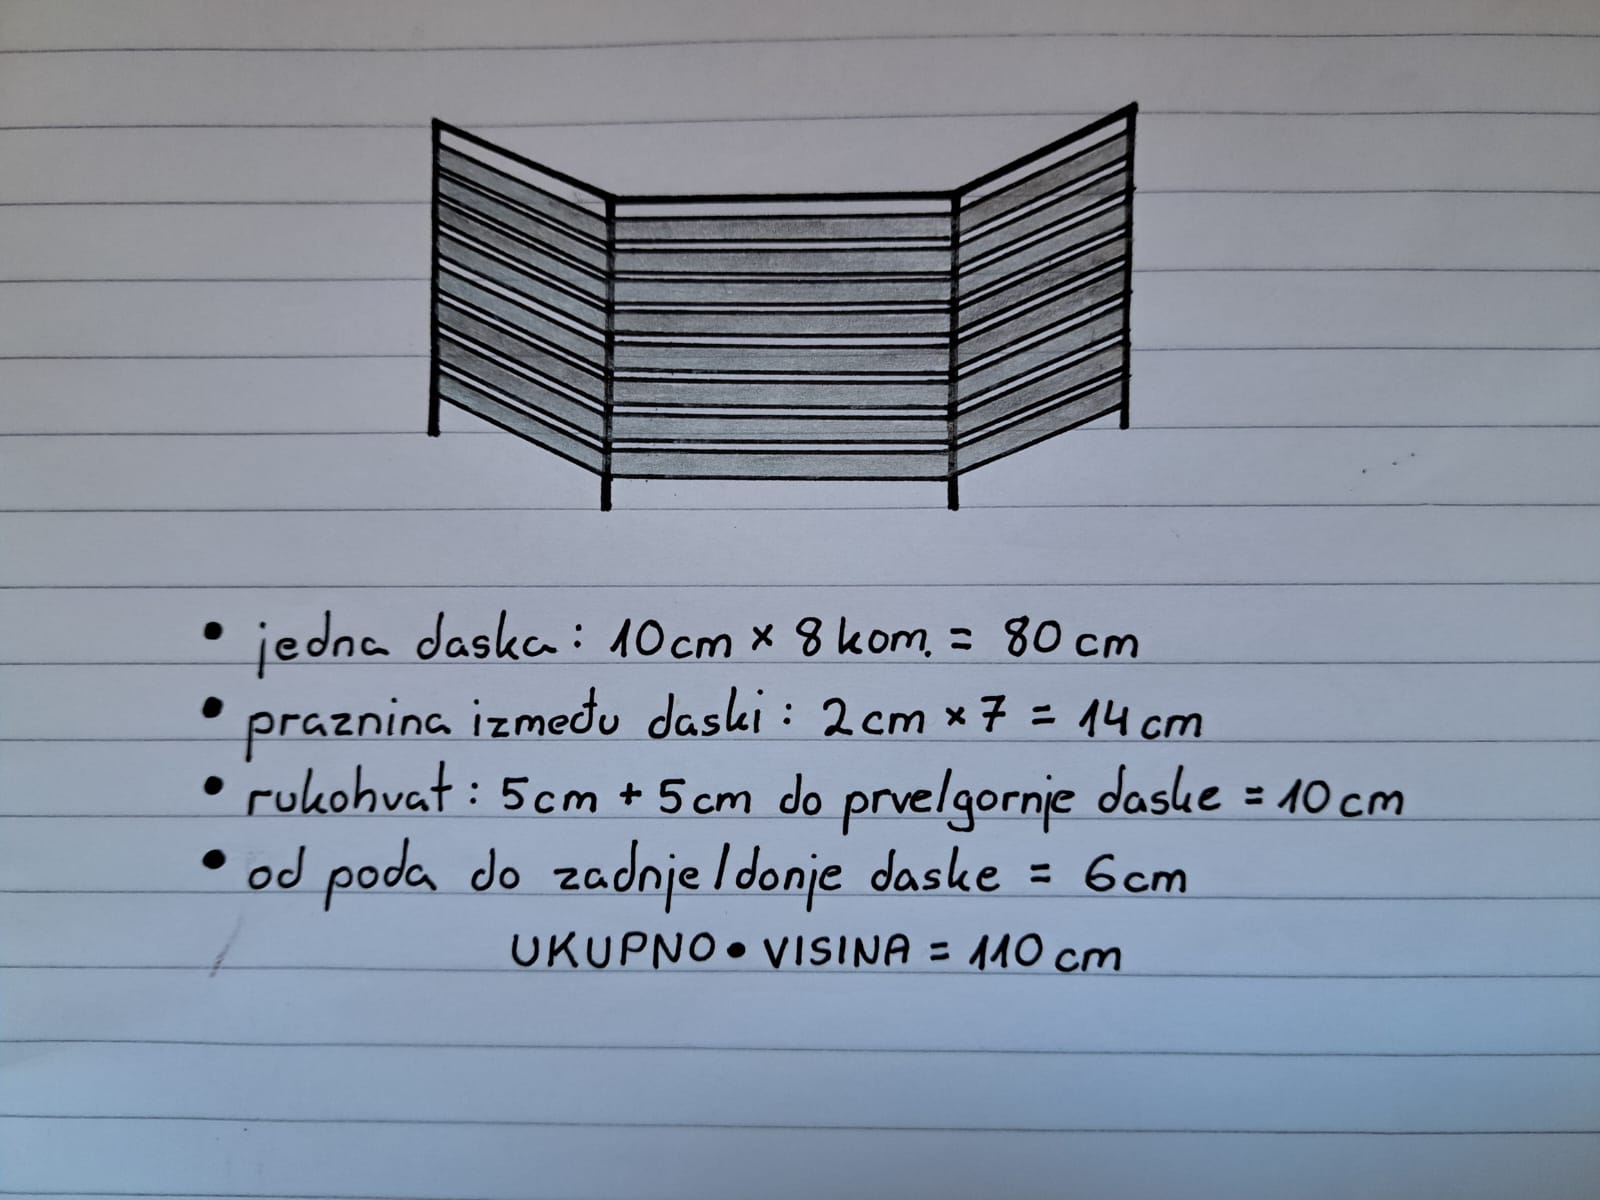 • jedna daska: 10cm x 8 kom. = 80 cm
• praznina između daski: 2cm x 7 = 14 cm
• rukohvat: 5cm + 5cm do prve/gornje daske = 10 cm
• od poda do zadnje/donje daske = 6cm
UKUPNO • VISINA = 110 cm